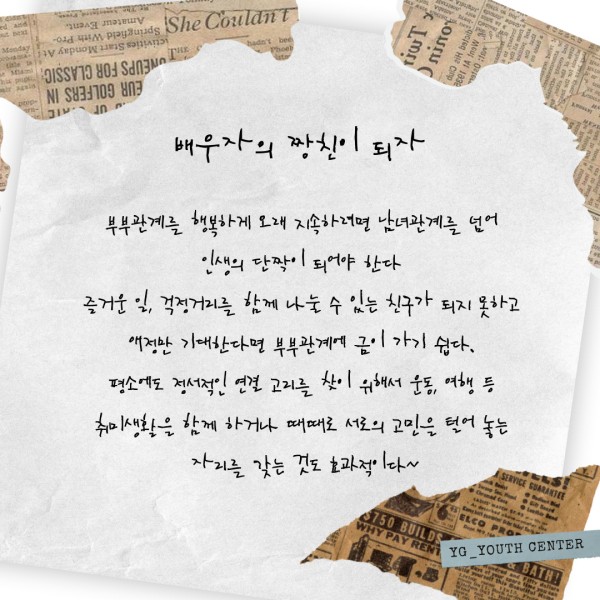 She Couldn't
배우자의 짱친이 되자
부부관계를 행복하게 오래 지속하려면 남녀관계를 넘어
인생의 단짝이 되어야 한다
즐거운 일, 걱정거리를 함께 나눌 수 있는 친구가 되지 못하고
애정만 기대한다면 부부관계에 금이 가기 쉽다.
평소에도 정서적인 연결 고리를 찾기 위해서 운동, 여행 등
취미생활을 함께 하거나 때때로 서로의 고민을 털어 놓는
자리를 갖는 것도 효과적이다~
SERVICE GUARANTEE
$750 BUILDS
WHY PAY RENT
ELCO PRO
& BATH!
YG_YOUTH CENTER